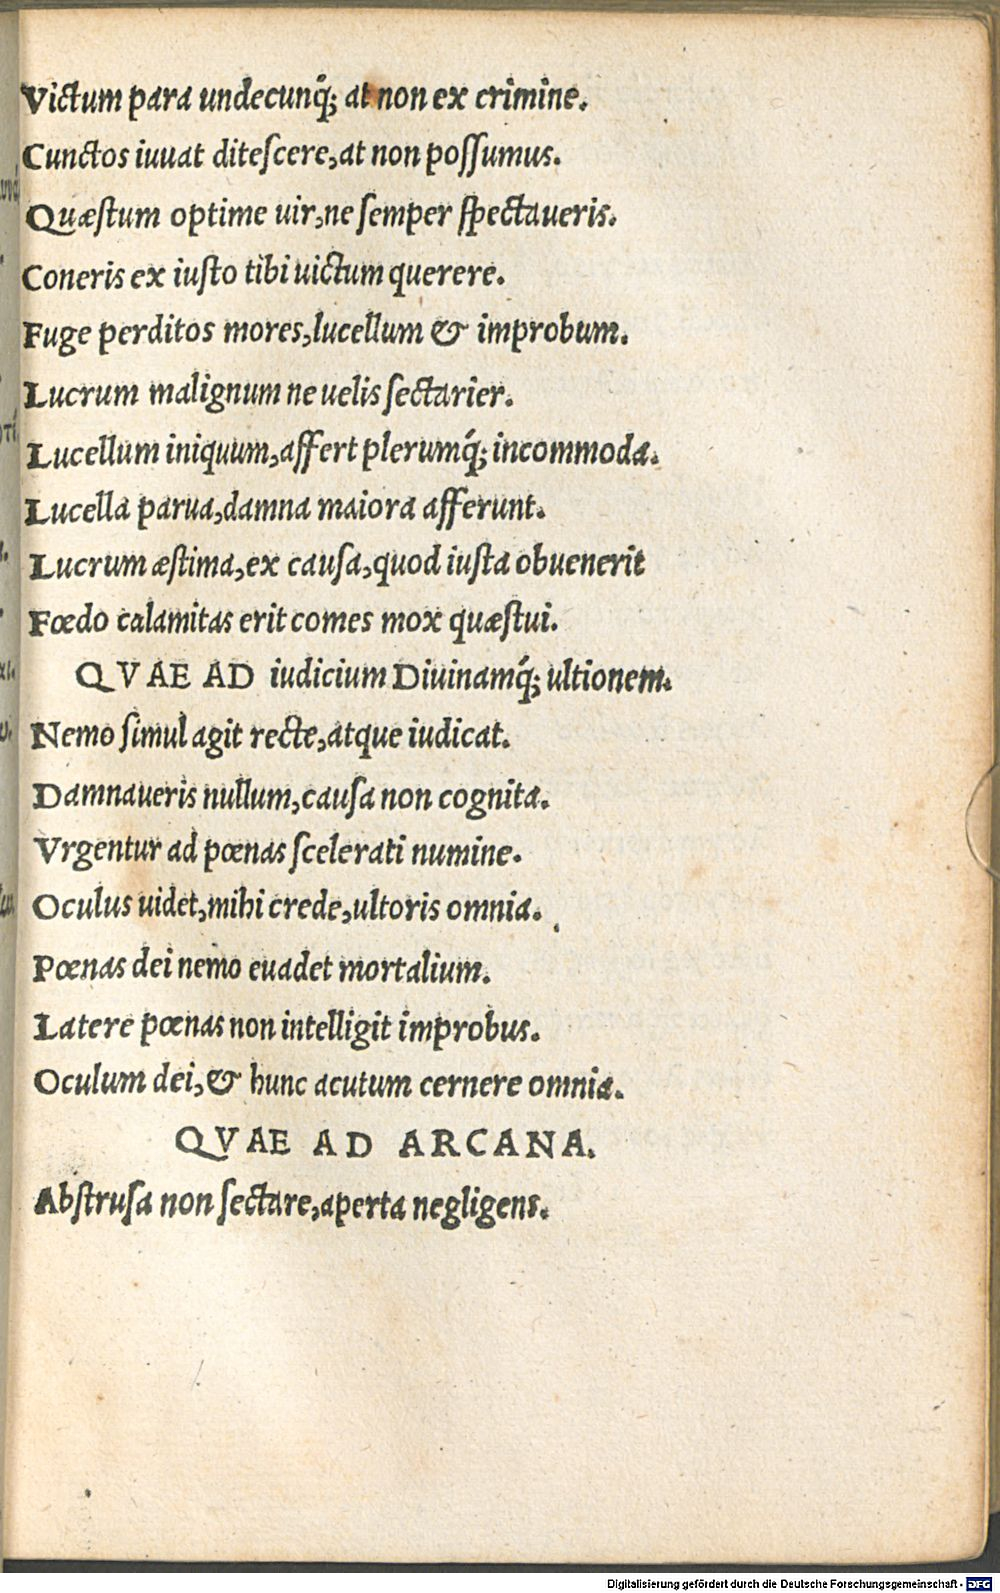 Victum para undecunq́; at non ex crimine.
Cunctos iuuat ditescere, at non possumus.
Quæstum optime uir, ne semper spectaueris.
Coneris ex iusto tibi uictum querere.
Fuge perditos mores, lucellum & improbum.
Lucrum malignum ne uelis sectarier.
Lucellum iniquum, affert plerumq́; incommoda.
Lucella parua, damna maiora afferunt.
Lucrum æstima, ex causa, quod iusta obuenerit
Fœdo calamitas erit comes mox quæstui.
QVAE AD iudicium Diuinamq́; ultionem.
Nemo simul agit recte, atque iudicat.
Damnaueris nullum, causa non cognita.
Vrgentur ad pœnas scelerati numine.
Oculus uidet, mihi crede, ultoris omnia.
Pœnas dei nemo euadet mortalium.
Latere pœnas non intelligit improbus.
Oculum dei, & hunc acutum cernere omnia.
QVAE AD ARCANA.
Abstrusa non sectare, aperta negligens.
Digitalisierung gefördert durch die Deutsche Forschungsgemeinschaft - DFG